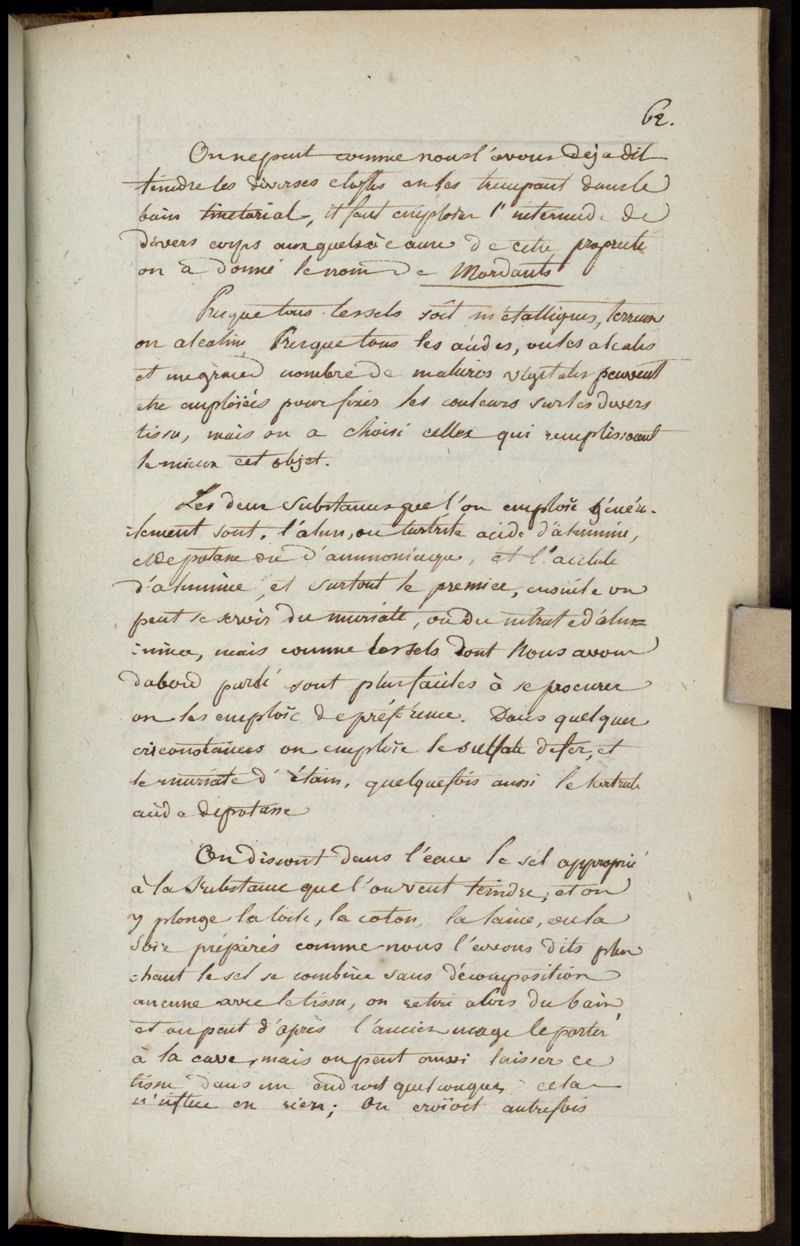 62.
On ne peut comme nous l'avons deja dit
teindre les diverses etoffes en les trempant dans le
bain tinctorial, il faut emploier l'intermede de
divers corps auxquels à cause de cette propriété
on à donné le nom de Mordants
Presque tous les sels soit métalliques, terreux
ou alcalins Presque tous les acides, ou les alcalis
et un grand nombre de matieres végétales peuvent
etre emploiés pour fixer les couleurs sur les divers
tissu, mais on a choisi celles qui remplissoient
le mieux cet objet.
Les deux substances que l'on emploie généra-
lement sont, l'alun, ou acide d'alumine,
et de potasse ou d'ammoniaque, et l'acétate
d'alumine, et surtout le premier, ensuite on
peut se servir du muriate, ou du nitrate d'alu=
:mine, mais comme les sels dont Nous avons
dabord parlé sont plus faciles à se procurer
on les emploie de préférence. Dans quelques
circonstances on emploie le sulfate de fer, et
le muriate d'étain, quelquefois aussi le tartrate
acide de potasse
On dissout dans l'eau le sel approprié
à la substance que l'on veut teindre, et on
y plonge la toile, le coton, la laine, ou la
soie préparés comme nous l'avons dits plus
:haut le sel se combine sans décomposition
aucune avec le tissu, on retire alors du bain
et on peut d'après l'ancien usage le porter
à la cave, mais on peut aussi laisser ce
tissu dans un endroit quelconque, cela
n'influe en rien; On croïoit autrefois